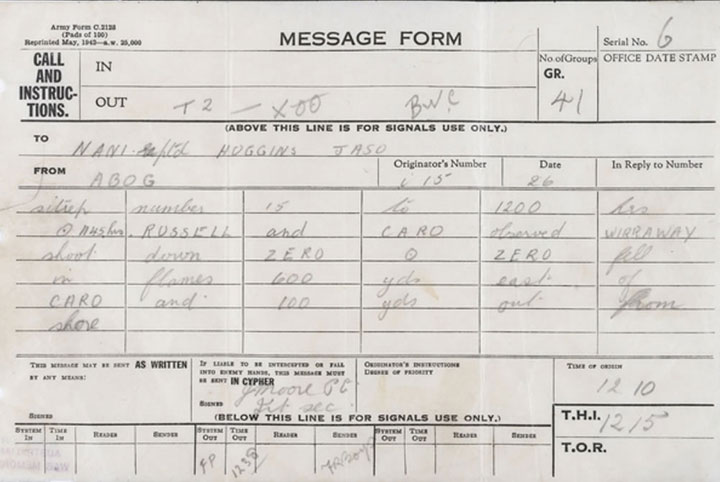 Army Form C.2128
(Pads of 100)
Reprinted May, 1942—A.W. 25,000
MESSAGE FORM
Serial No. 6
CALL AND INSTRUC-TIONS.
IN
No. of Groups GR. 41
OFFICE DATE STAMP
OUT T2 — XOO
(ABOVE THIS LINE IS FOR SIGNALS USE ONLY.)
TO NANI rptd HUGGINS JASO
FROM ABOG
Originator's Number 15
Date 26
In Reply to Number
sitrep number 15 to 1200 hrs
RUSSELL and CARO observed WIRRAWAY
shoot down ZERO O ZERO fell
in flames 600 yds east of
CARO and 100 yds out from
shore
THIS MESSAGE MAY BE SENT AS WRITTEN BY ANY MEANS:
SIGNED
IF LIABLE TO BE INTERCEPTED OR FALL INTO ENEMY HANDS, THIS MESSAGE MUST BE SENT IN CYPHER
SIGNED J Moore
ORIGINATOR'S INSTRUCTIONS
DEGREE OF PRIORITY
TIME OF ORIGIN
1210
(BELOW THIS LINE IS FOR SIGNALS USE ONLY.)
T.H.I. 1215
SYSTEM IN TIME IN READER SENDER SYSTEM OUT TIME OUT READER SENDER SYSTEM OUT TIME OUT READER SENDER
T.O.R.